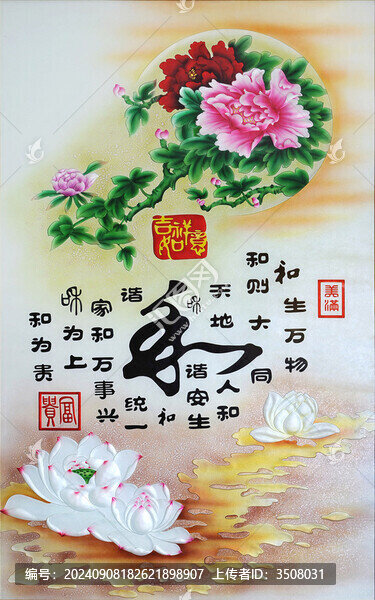 吉祥如意
美满
和生万物
和则大同
天地人和
和谐安生
和
和
谐统一
家和万事兴
和为上
和为贵
富贵
编号：20240908182621898907 上传者ID：3508031